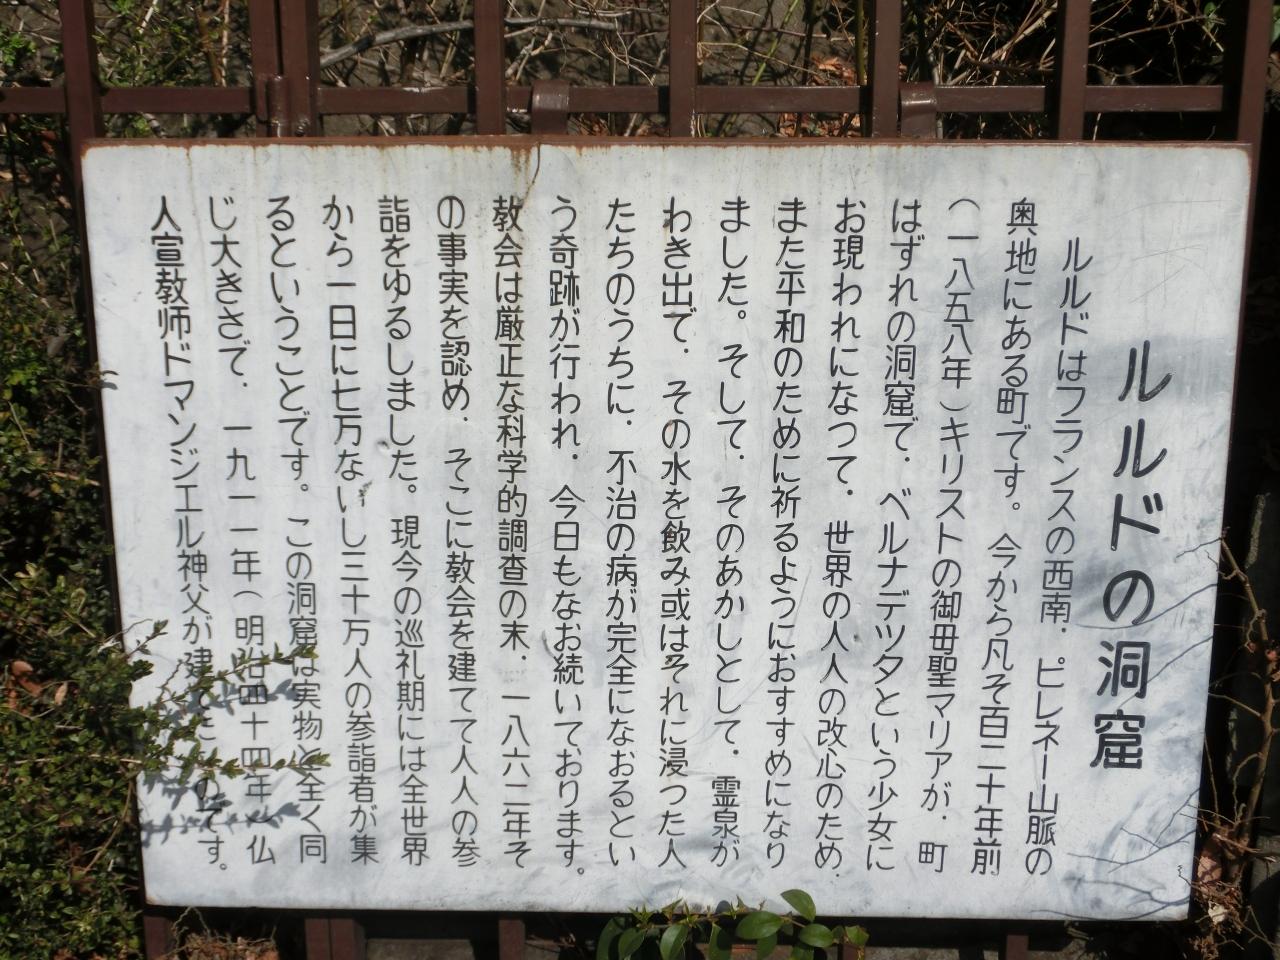 ルルドの洞窟
ルルドはフランスの西南．ピレネー山脈の
奥地にある町です。今から凡そ百二十年前
（一八五八年）キリストの御母聖マリアが．町
はずれの洞窟で．ベルナデツタという少女に
お現われになつて．世界の人人の改心のため
また平和のために祈るようにおすすめになり
ました。そして．そのあかしとして．霊泉が
わき出で．その水を飲み或はそれに浸つた人
たちのうちに．不治の病が完全になおるとい
う奇跡が行われ．今日もなお続いております。
教会は厳正な科学的調査の末．一八六二年そ
の事実を認め．そこに教会を建てて人人の参
詣をゆるしました。現今の巡礼期には全世界
から一日に七万ないし三十万人の参詣者が集
るということです。この洞窟は実物と全く同
じ大きさで．一九一一年（明治四十四年）仏
人宣教师ドマンジエル神父が建てたものです。